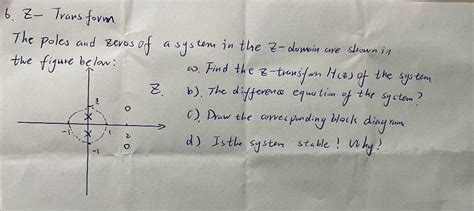 6. Z- Transform
The poles and zeros of a system in the Z-domain are shown in
the figure below:
a). Find the z-transform H(z) of the system
b). The difference equation of the system?
c) Draw the corresponding block diagram
d) Is the system stable! Why!
Z.
1
-1
1
2
-1